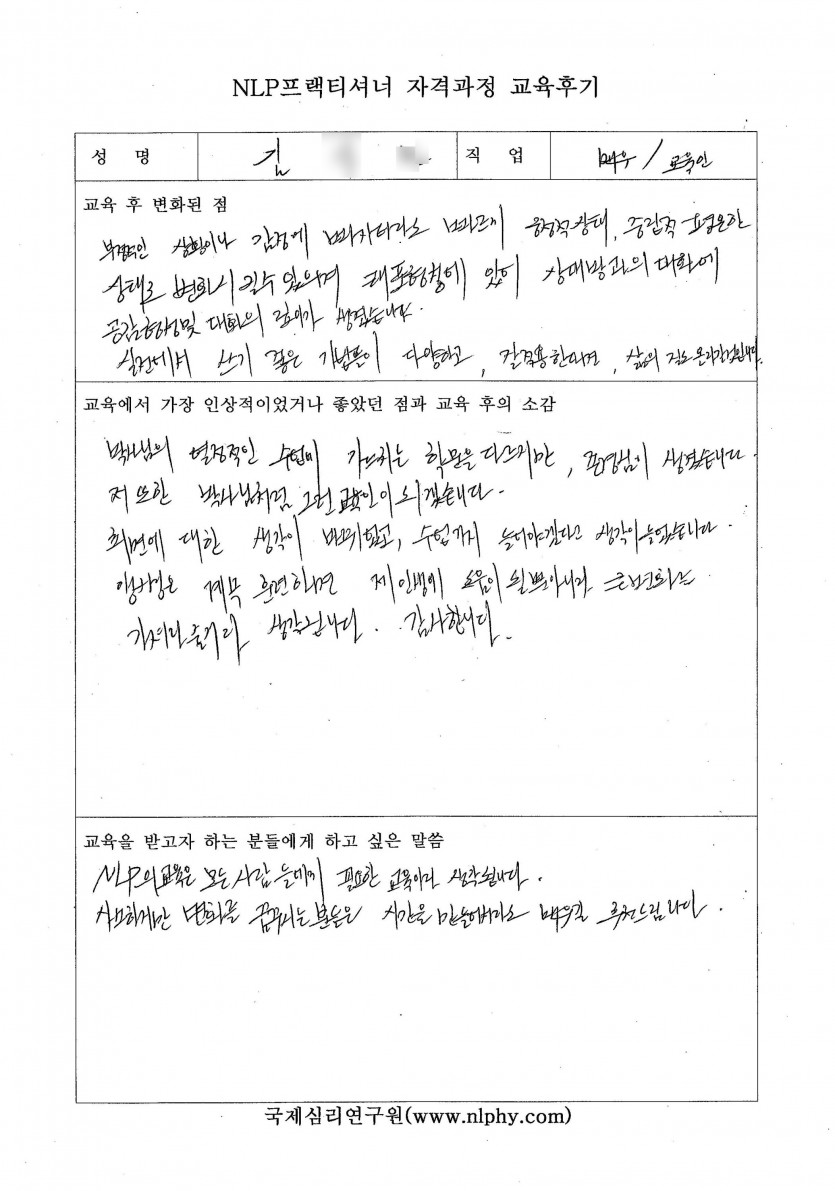 NLP프랙티셔너 자격과정 교육후기
성 명 김 직 업 배우 / 교육인
교육 후 변화된 점
부정적인 상황이나 감정에 빠지더라도 빠르게 긍정적 상태, 중립적 평온한
상태로 변화시킬수 있으며 래포형성에 있어 상대방과의 대화에
공감형성및 대화의 깊이가 생겼습니다.
실전에서 쓰기 좋은 기법들이 다양하고, 잘적용한다면, 삶의 질도 올라갈것입니다.
교육에서 가장 인상적이었거나 좋았던 점과 교육 후의 소감
박사님의 열정적인 수업에 가르치는 학문은 다르지만, 존경심이 생겼습니다.
저 또한 박사님처럼 그런 교육인이 되겠습니다.
최면에 대한 생각이 바뀌었고, 수업까지 들어야겠다고 생각이 들었습니다.
계속 훈련하면 제 인생에 도움이 될뿐아니라 큰변화를
가져다 줄거라 생각됩니다. 감사합니다.
교육을 받고자 하는 분들에게 하고 싶은 말씀
NLP의 교육은 모든 사람들에게 필요한 교육이라 생각됩니다.
변화를 꿈꾸시는 분들은 시간을 만들어서라도 배우길 추천드립니다.
국제심리연구원(www.nlphy.com)